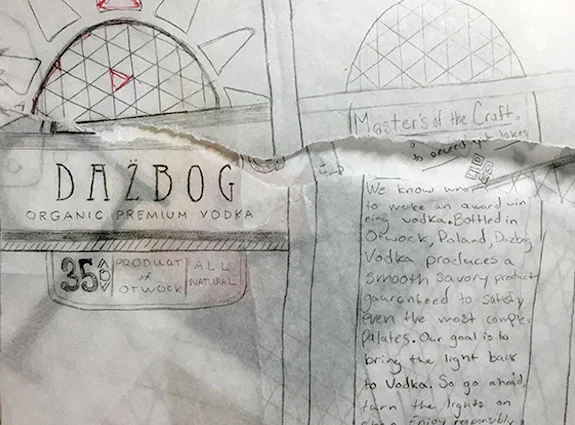 DAŻBOG
ORGANIC PREMIUM VODKA
35
ABV
PRODUCT
of
OTWOCK
ALL
NATURAL
Master's of the Craft.
We know
to make an award win
ning vodka. Bottled in
Otwock, Poland, Dazbog
Vodka produces a
smooth savory product
gaurenteed to satisfy
even the most complex
Palates. Our goal is to
bring the light back
to Vodka. So go ahead,
turn the lights on
Enjoy responsibly